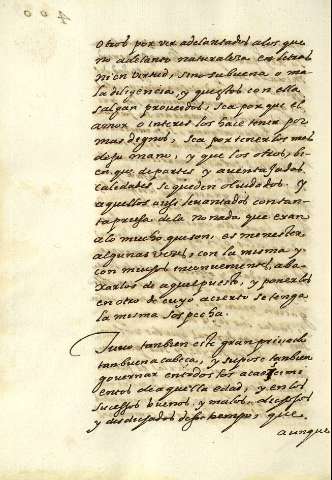 400
otros por ver adelantados a los que
no adelanto naturaleza en letras
ni en virtud, sino su buena o ma
la diligencia, y que estos con ella
salgan proveidos, sea por que el
amor o interes los hace tener por
mas dignos, sea por tenerlos mas
de su mano, y que los otros, bi
en que de partes y aventajadas
calidades se queden olvidados. Y
aquellos assi levantados con tan
ta priesa de la nonada que eran
a lo mucho que son, es menester
algunas veces, con la misma y
con muchos inconvenientes, aba
xarlos de aquel puesto, y ponerlos
en otro de cuyo acierto se tenga
la misma sospecha.
Tuvo tambien este gran privado
tan buena cabeca, y suposse tambien
governar en todos los acaecimi
entos de aquella edad, y en los
sucessos buenos, y malos, dichosos
y desdichados de su tiempo, que
aunque